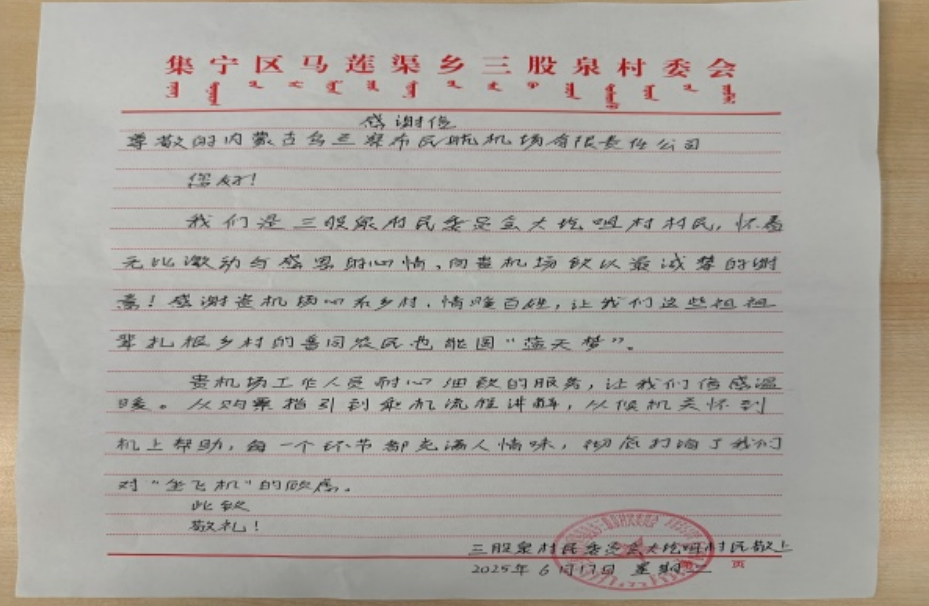 集宁区马莲渠乡三股泉村委会
感谢信
尊敬的内蒙古乌兰察布民航机场有限责任公司
您好！
我们是三股泉村民委员会大圪咀村村民，怀着
无比激动与感恩的心情，向贵机场致以最诚挚的谢
意！感谢贵机场心系乡村，情暖百姓，让我们这些祖祖
辈扎根乡村的普通农民也能圆“蓝天梦”。
贵机场工作人员耐心细致的服务，让我们倍感温
暖。从购票指引到乘机流程讲解，从候机关怀到
机上帮助，每一个环节都充满人情味，彻底打消了我们
对“坐飞机”的顾虑。
此致
敬礼！
三股泉村民委员会大圪咀村民敬上
2025年6月17日 星期二 页